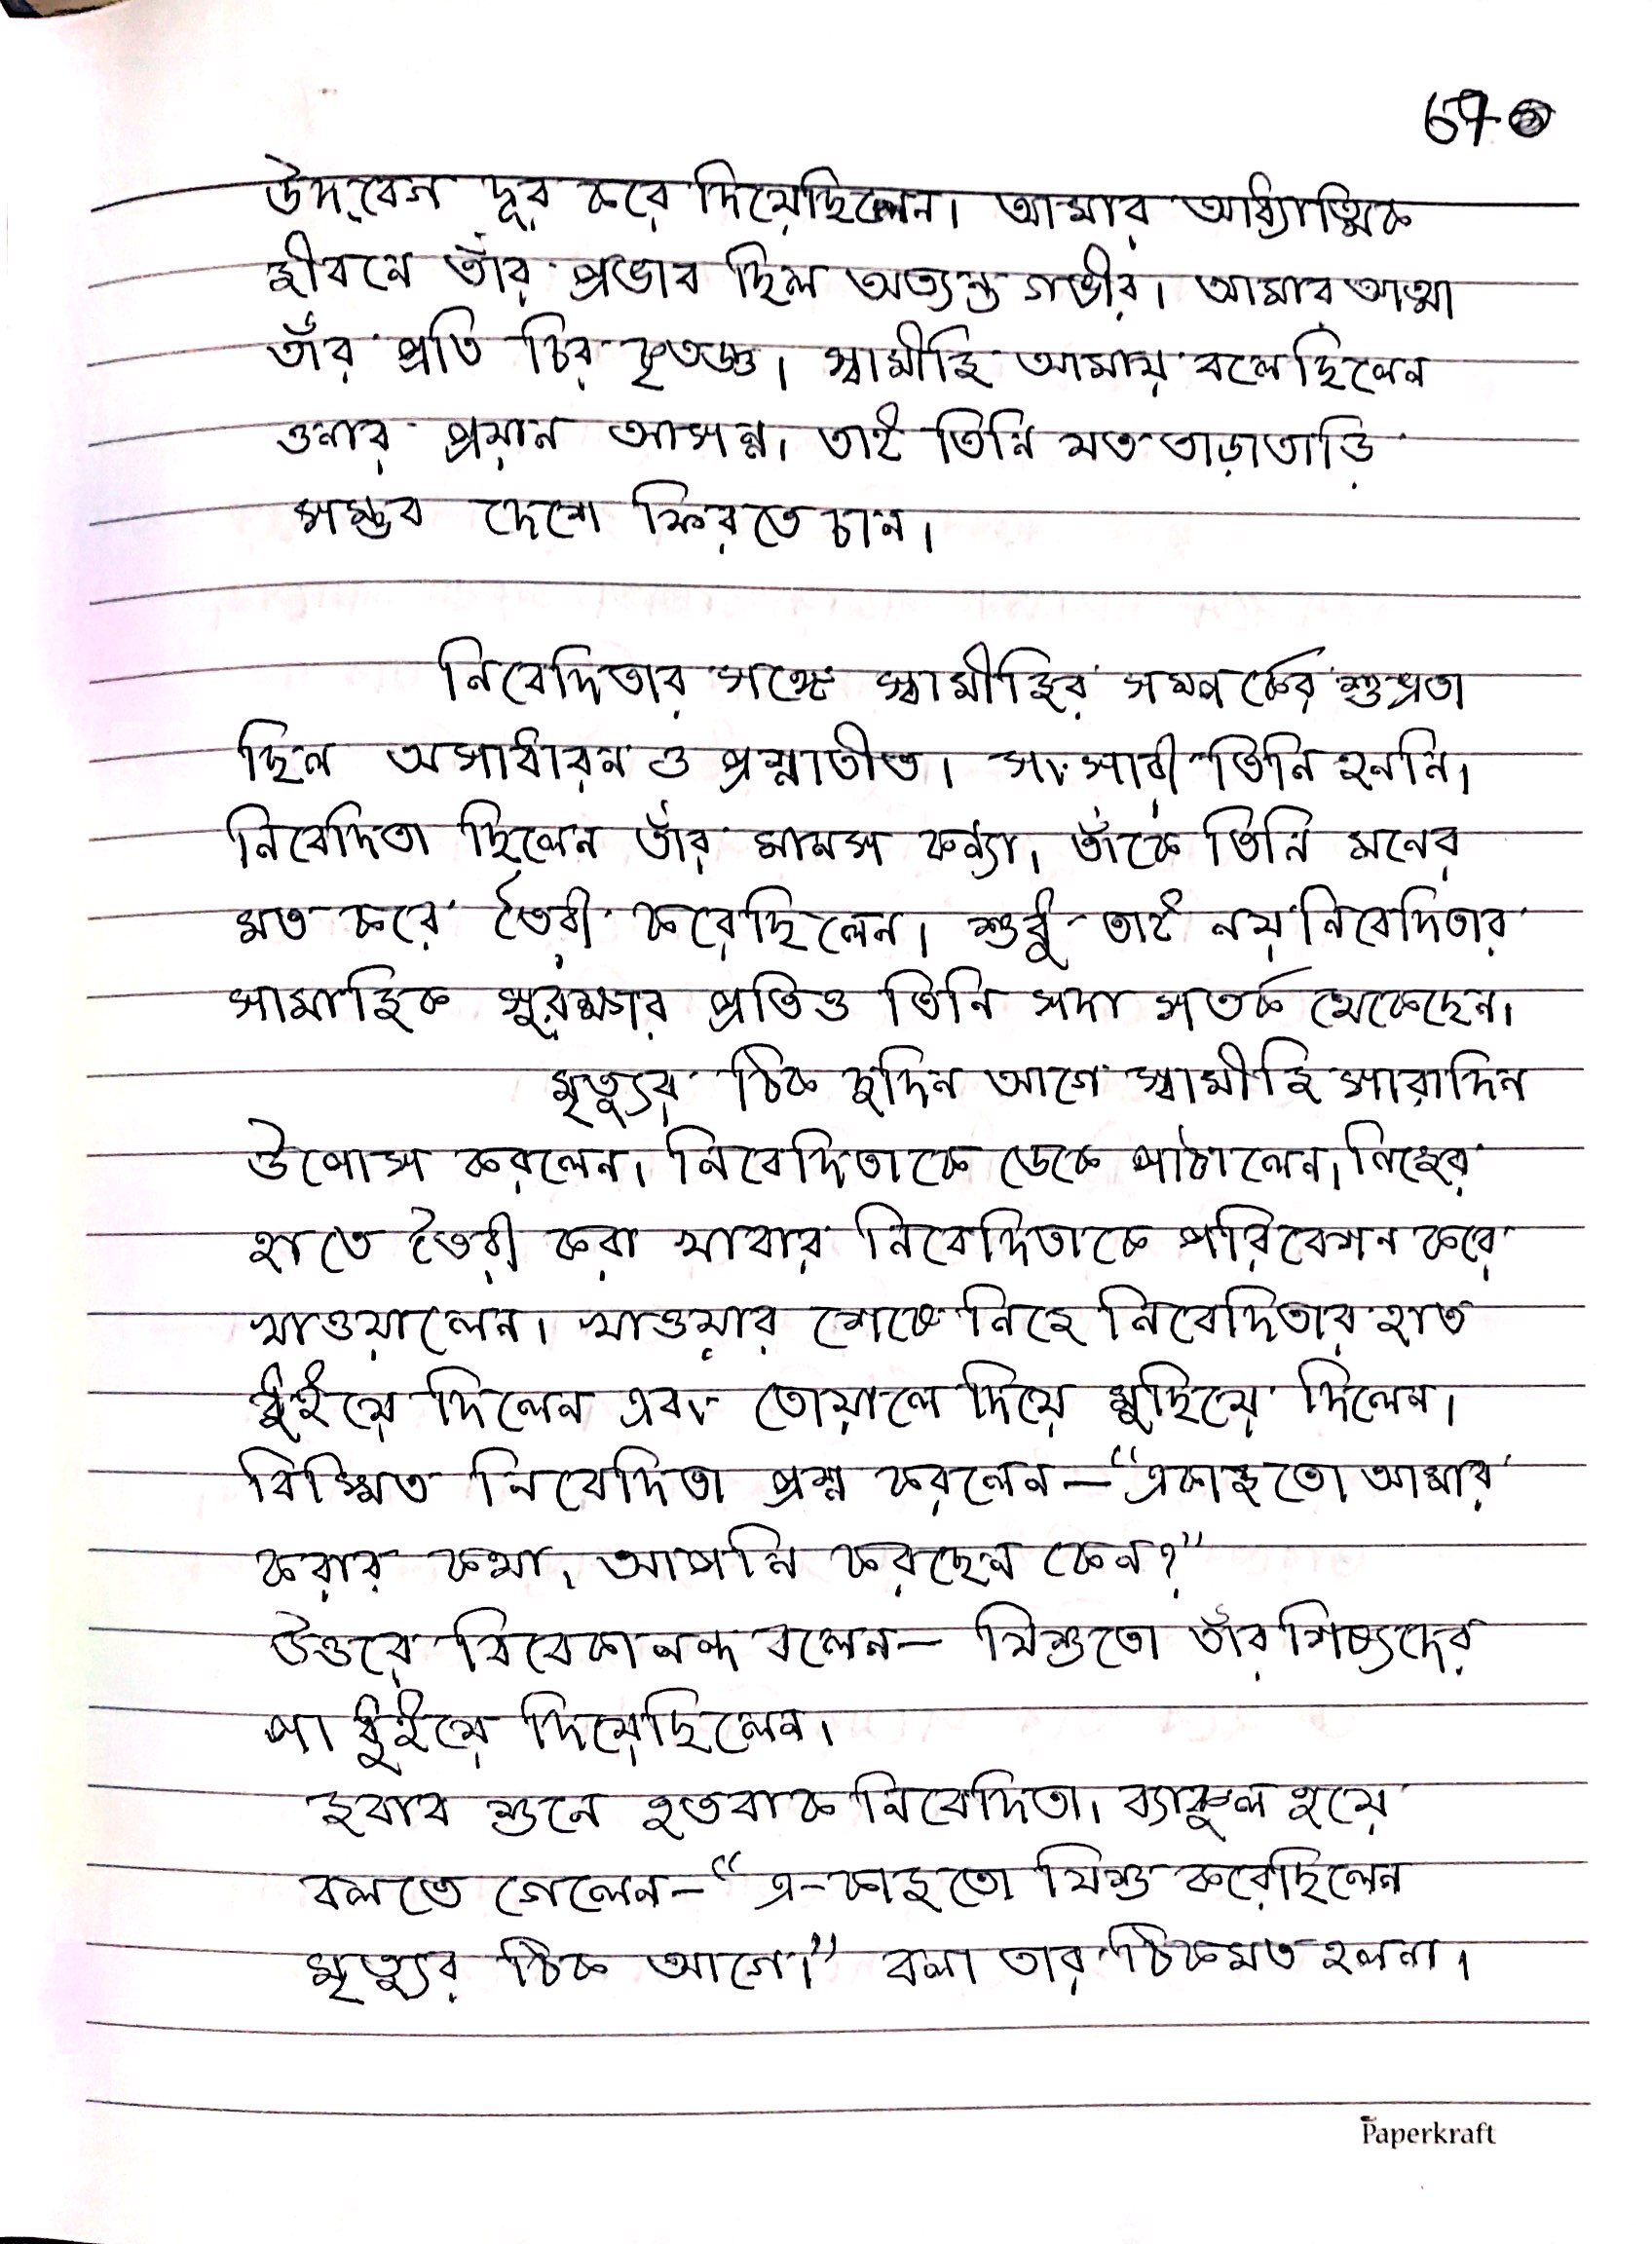 67
উদ্‌বেগ দূর করে দিয়েছিলেন। আমার আধ্যাত্মিক
জীবনে তাঁর প্রভাব ছিল অত্যন্ত গভীর। আমার আত্মা
তাঁর প্রতি চির কৃতজ্ঞ। স্বামীজি আমায় বলেছিলেন
ওনার প্রয়ান আসন্ন। তাই তিনি যত তাড়াতাড়ি
সম্ভব দেশে ফিরতে চান।
নিবেদিতার সঙ্গে স্বামীজির সম্পর্কের শুভ্রতা
ছিল অসাধারন ও প্রশ্নাতীত। সংসারী তিনি হননি।
নিবেদিতা ছিলেন তাঁর মানস কন্যা। তাঁকে তিনি মনের
মত করে তৈরী করেছিলেন। শুধু তাই নয় নিবেদিতার
সামাজিক সুরক্ষার প্রতিও তিনি সদা সতর্ক থেকেছেন।
মৃত্যুর ঠিক দুদিন আগে স্বামীজি সারাদিন
উপোস করলেন। নিবেদিতাকে ডেকে পাঠালেন। নিজের
হাতে তৈরী করা খাবার নিবেদিতাকে পরিবেশন করে
খাওয়ালেন। খাওয়ার শেষে নিজে নিবেদিতার হাত
ধুইয়ে দিলেন এবং তোয়ালে দিয়ে মুছিয়ে দিলেন।
বিস্মিত নিবেদিতা প্রশ্ন করলেন—“একাজ তো আমার
করার কথা, আপনি করছেন কেন?”
উত্তরে বিবেকানন্দ বলেন— যিশু তো তাঁর শিষ্যদের
পা ধুইয়ে দিয়েছিলেন।
জবাব শুনে হতবাক নিবেদিতা। ব্যাকুল হয়ে
বলতে গেলেন—“এ-কাজ তো যিশু করেছিলেন
মৃত্যুর ঠিক আগে।” বলা তার ঠিকমত হলনা।
Paperkraft